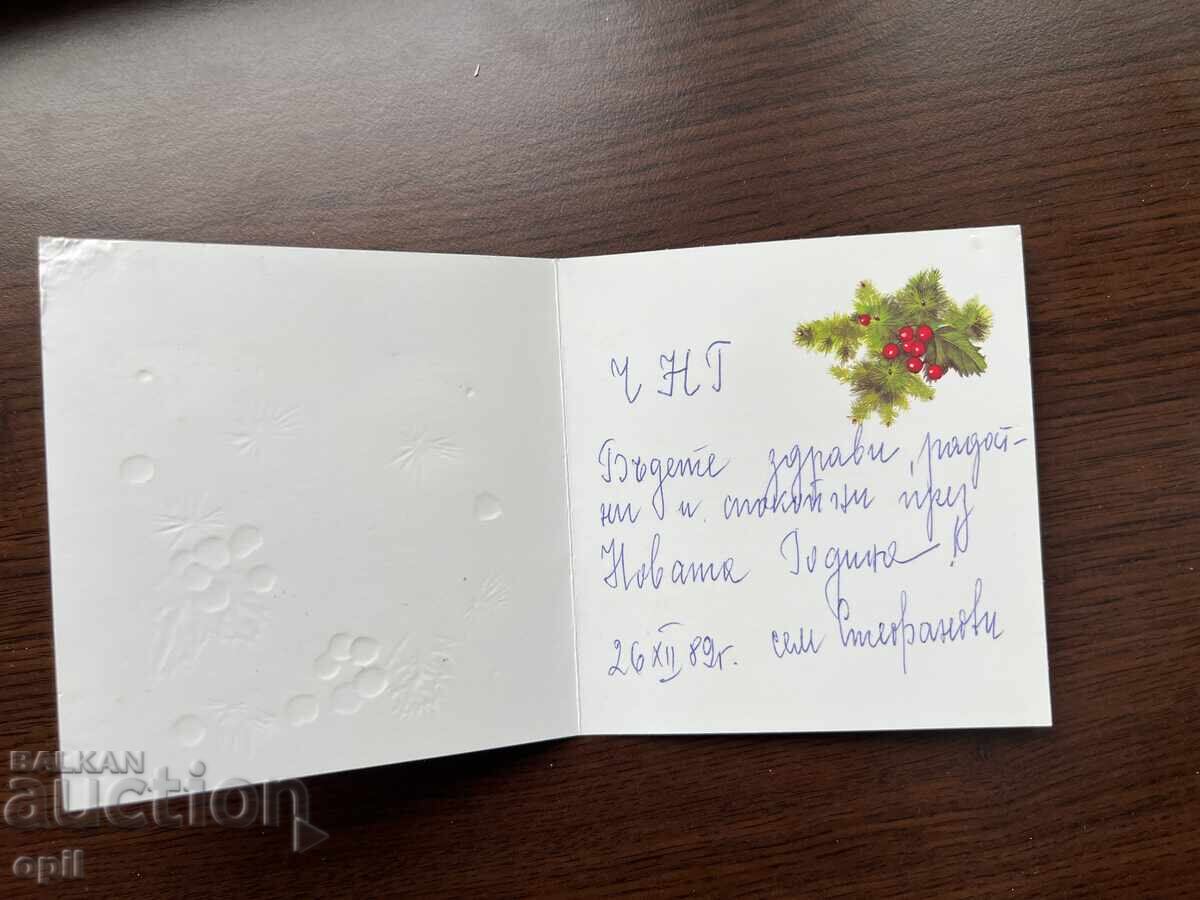 ЧНГ
Бъдете здрави, радост-
ни и спокойни през
Новата Година!
26 XII 89г. сем Стефанови
BALKAN
auction
opil